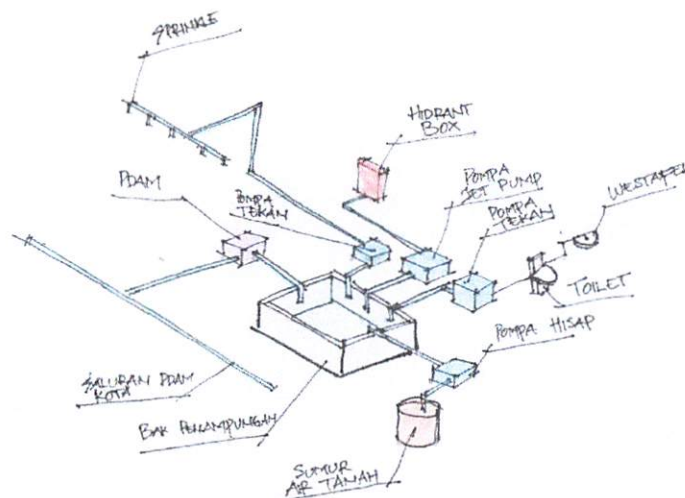 SPRINKLE
HIDRANT
BOX
PDAM
POMPA
TEKAN
POMPA
JET PUMP
POMPA
TEKAN
WESTAFEL
TOILET
POMPA HISAP
SALURAN PDAM
KOTA
BAK PENAMPUNGAN
SUMUR
AIR TANAH